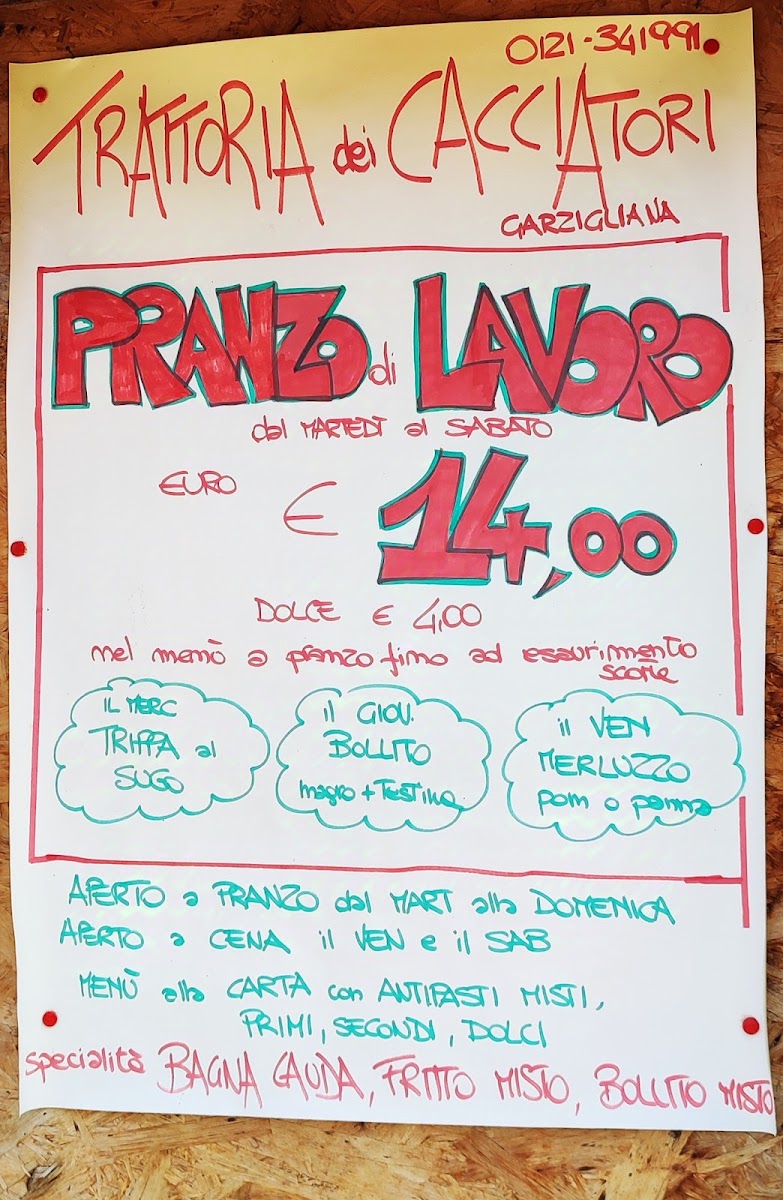 0121-341991
TRATTORIA dei CACCIATORI
GARZIGLIANA
PRANZO di LAVORO
dal MARTEDÌ al SABATO
EURO € 14,00
DOLCE € 4,00
nel menù a pranzo fino ad esaurimento
scorte
IL MERC
TRIPPA al
SUGO
il GIOV.
BOLLITO
magro + TESTINA
il VEN
MERLUZZO
pom o panna
APERTO a PRANZO dal MART alla DOMENICA
APERTO a CENA il VEN e il SAB
MENÙ alla CARTA con ANTIPASTI MISTI,
PRIMI, SECONDI, DOLCI
specialità BAGNA CAUDA, FRITTO MISTO, BOLLITO MISTO